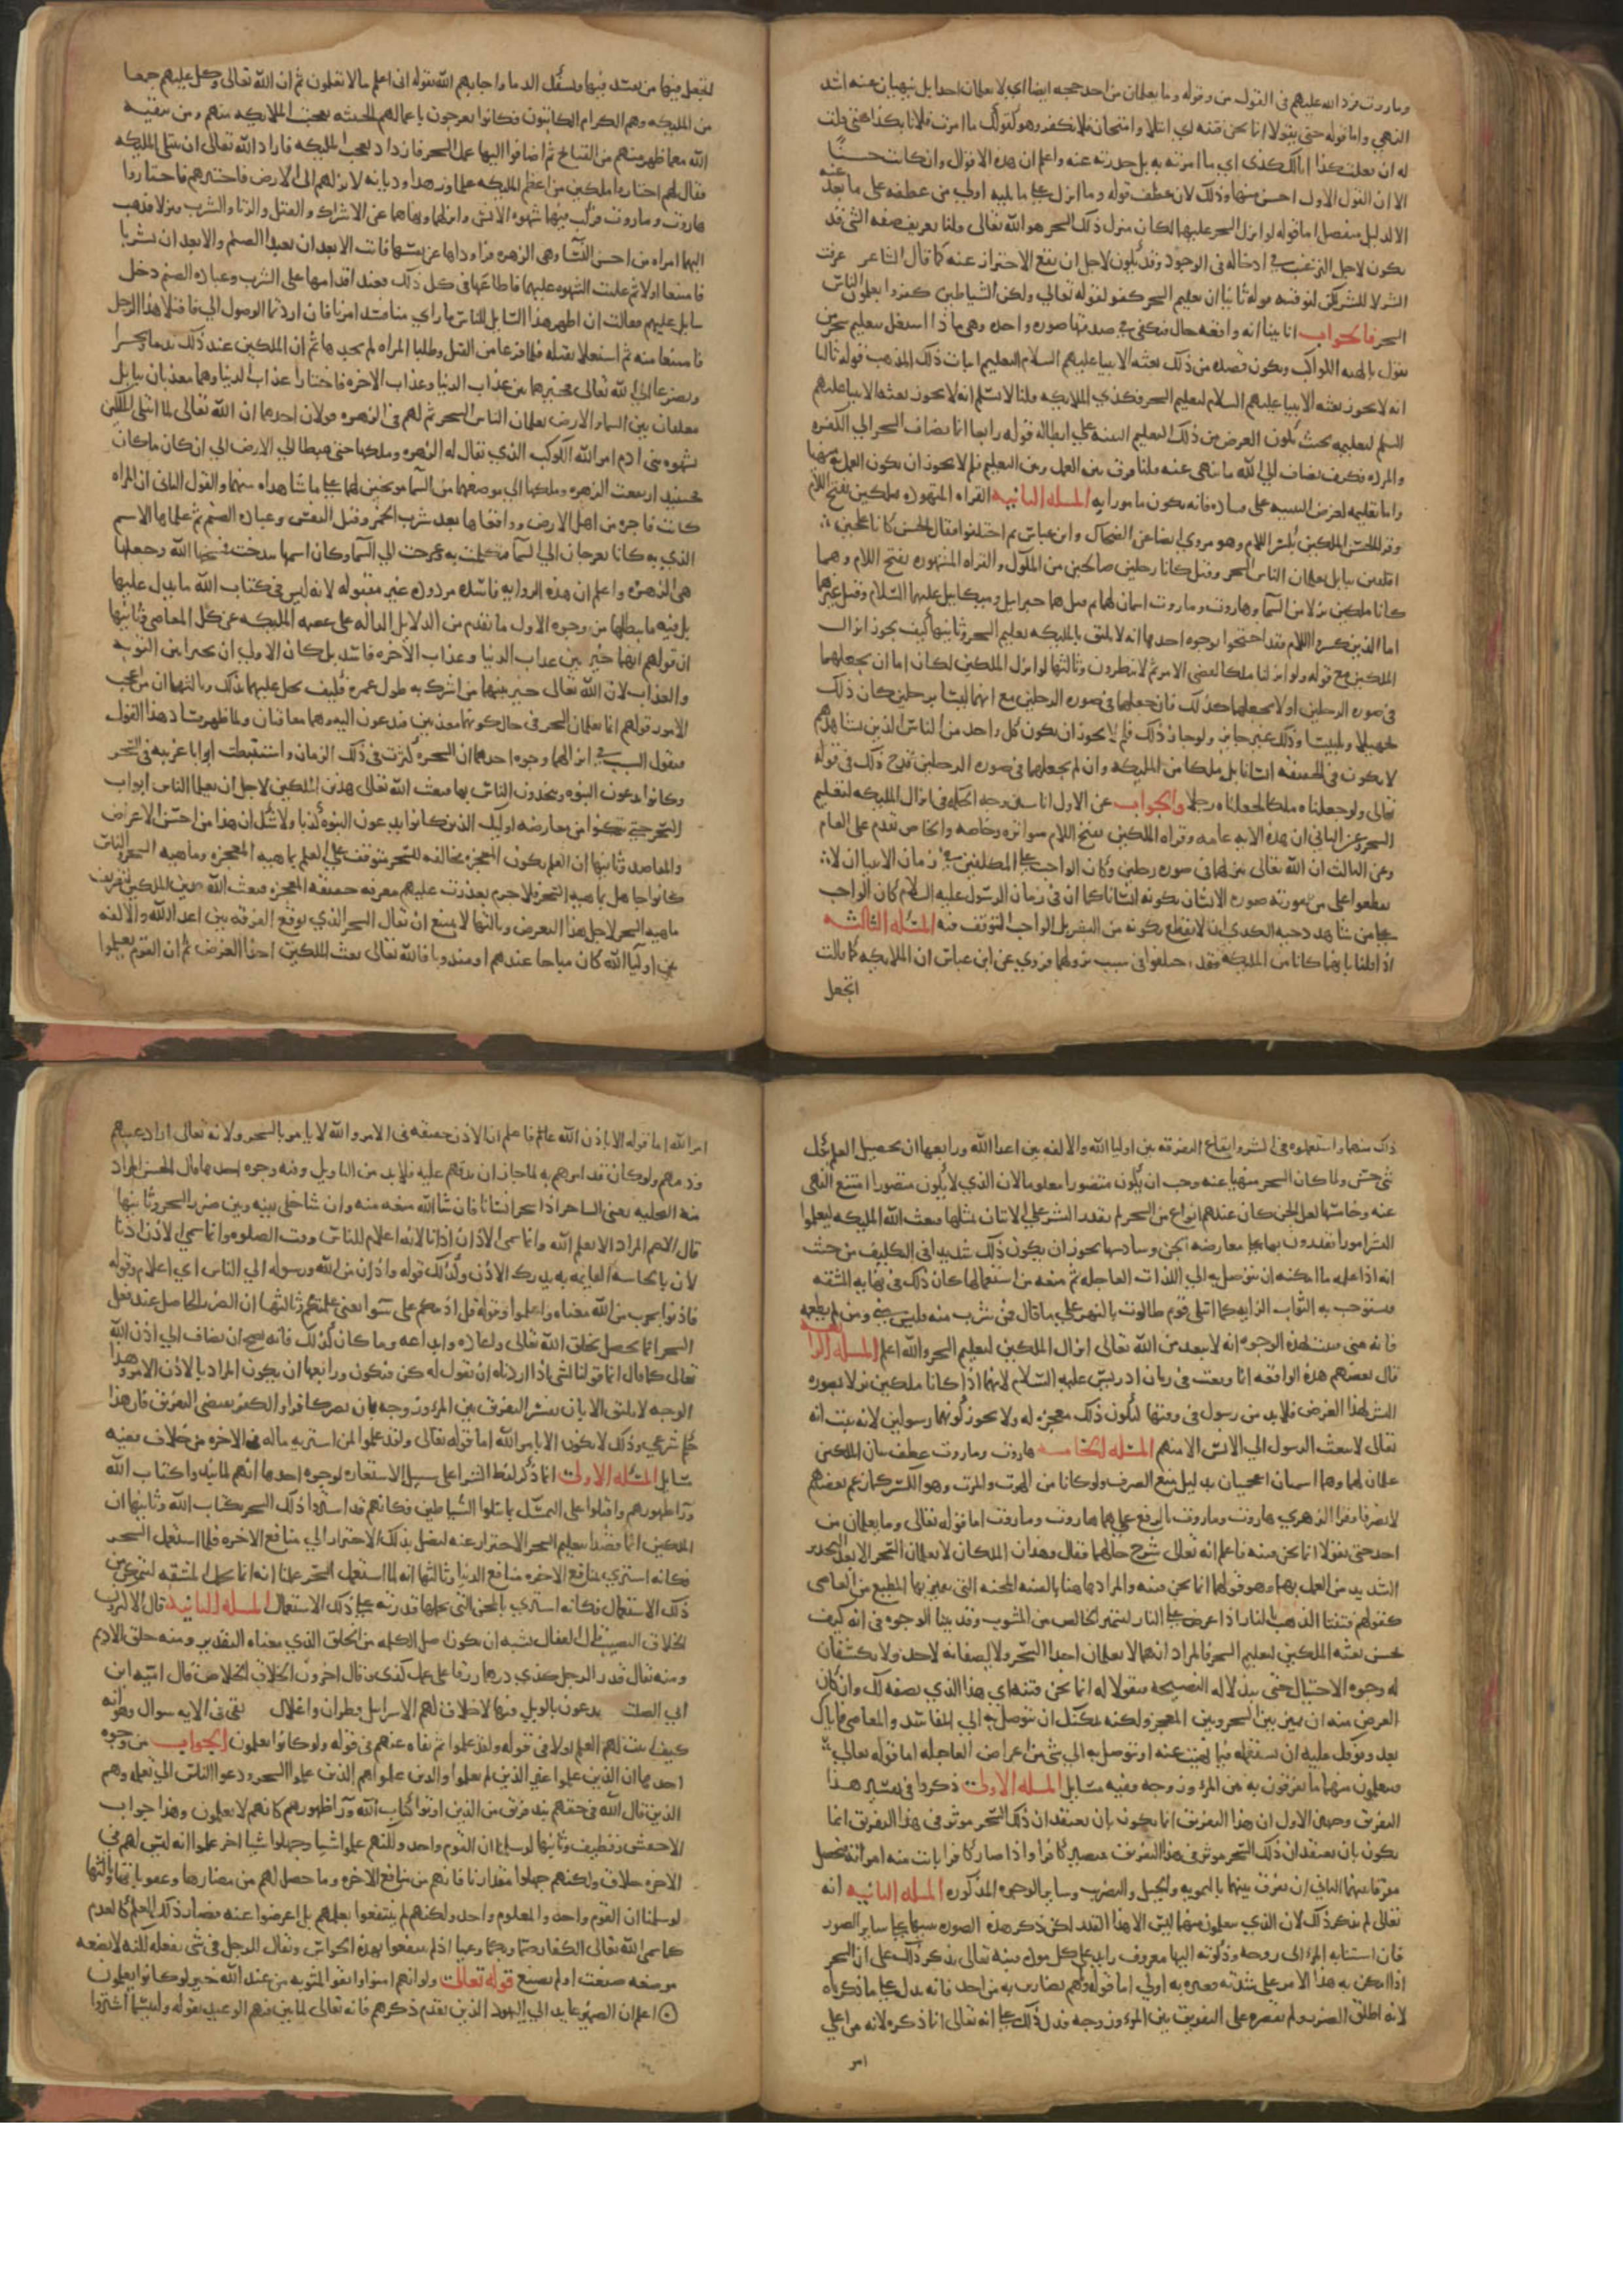 وماروت فرد الله عليهم في القول من وقوله وما يعلمان من احد جحد ايضا اي لا يعلمان احدا بل ينهيان عنه اشد
النهي واما قوله حتى يقولا انما نحن فتنه اي ابتلا وامتحان فلا تكفر وهو كقولك ما امرت فلانا بكذا حتى قلت
له ان فعلت كذا نالك كذى اي ما امرته به بل حذرته عنه واعلم ان هذه الاقوال وان كانت حسنة
الا ان القول الاول احسن منها وذلك لان عطف قوله وما انزل على ما يليه اولى من عطفه على ما بعد عنه
الا لدليل منفصل اما قوله لو انزل السحر عليهما لكان منزل ذلك السحر هو الله تعالى قلنا تعريف صفه الشي قد
يكون لاجل الترغيب في ادخاله في الوجود وقد يكون لاجل ان يقع الاحتراز عنه كما قال الشاعر عرفت
الشر لا للشر لكن لتوقيه قوله ثانيا ان تعليم السحر كفر لقوله تعالى ولكن الشياطين كفروا يعلمون الناس
السحر فالجواب انا بينا انه واقعه حال فيكفي في صدقها صوره واحده وهي ما اذا اشتغل بتعليم سحر من
يقول بالهيه الكواكب ويكون قصده من ذلك بعثه الانبيا عليهم السلام لتعليم اثبات ذلك المذهب قوله ثالثا
انه لا يجوز بعثه الانبيا عليهم السلام لتعليم السحر فكذى الملايكه قلنا لا نسلم انه لا يجوز بعثه الانبيا عليهم
السلم لتعليمه بحيث يكون الغرض من ذلك التعليم التنبيه على ابطاله قوله رابعا انما يضاف السحر الى الكفره
والمرده فكيف يضاف الى الله ما نهى عنه قلنا فرق بين العمل وبين التعليم فلم لا يجوز ان يكون العمل منهيا
واما تعليمه لغرض التنبيه على فساده فانه يكون مامورا به المسله الثانيه القراه المشهوره ملكين بفتح اللام
وقرا الحسن الملكين بكسر اللام وهو مروي ايضا عن الضحاك وابن عباس ثم اختلفوا فقال الحسن كانا علجين
اقلفين ببابل يعلمان الناس السحر وقيل كانا رجلين صالحين من الملوك والقراه المشهوره بفتح اللام وهما
كانا ملكين نزلا من السما وهاروت وماروت اسمان لهما وقيل هما جبرايل وميكايل عليهما السلام وقيل غيرهما
اما الذين كسروا اللام فقد احتجوا بوجوه احدها انه لا يليق بالمليكه تعليم السحر وثانيها كيف يجوز انزال
الملكين مع قوله ولو انزلنا ملكا لقضي الامر ثم لا ينظرون وثالثها لو انزل الملكين لكان اما ان يجعلهما
في صوره الرجلين او لا يجعلهما كذلك فان جعلهما في صوره الرجلين مع انهما ليسا برجلين كان ذلك
تجهيلا وتلبيسا وذلك غير جايز ولو جاز ذلك فلم لا يجوز ان يكون كل واحد من الناس الذين نشاهدهم
لا يكون في الحقيقه انسانا بل ملكا من المليكه وان لم يجعلهما في صوره الرجلين قدح ذلك في قوله
تعالى ولو جعلناه ملكا لجعلناه رجلا والجواب عن الاول انا سنبين وجه الحكمه في انزال المليكه لتعليم
السحر وعن الثاني ان هذه الايه عامه وقراه الملكين بفتح اللام متواتره وخاصه والخاص يقدم على العام
وعن الثالث ان الله تعالى انزلهما في صوره رجلين وكان الواجب على المكلفين في زمان الانبيا ان لا
يقطعوا على من صورته صوره الانسان بكونه انسانا كما ان في زمان الرسول عليه السلام كان الواجب
على من شاهد دحيه الكلبي ان لا يقطع بكونه من البشر بل الواجب التوقف فيه المسله الثالثه
اذا قلنا بانهما كانا من المليكه فقد اختلفوا في سبب نزولهما فروي عن ابن عباس ان الملايكه لما قالت
اتجعل
اتجعل فيها من يفسد فيها ويسفك الدما واجابهم الله بقوله اني اعلم ما لا تعلمون ثم ان الله تعالى وكل عليهم جمعا
من المليكه وهم الكرام الكاتبون فكانوا يعرجون باعمالهم الخبيثه فعجبت الملايكه منهم ومن تبقيه
الله مع ما ظهر منهم من القبايح ثم اضافوا اليها عمل السحر فازداد تعجب المليكه فاراد الله تعالى ان يبتلي المليكه
فقال لهم اختاروا ملكين من اعظم المليكه علما وزهدا وديانه لانزلهم الى الارض فاختبرهم فاختاروا
هاروت وماروت فركب فيهما شهوه الانس وانزلهما ونهاهما عن الاشراك والقتل والزنا والشرب فنزلا فذهب
اليهما امراه من احسن النسا وهي الزهره فراوداها عن نفسها فابت الا بعد ان يعبدا الصنم والا بعد ان يشربا
فامتنعا اولا ثم غلبت الشهوه عليهما فاطاعاها في كل ذلك فعند اقدامهما على الشرب وعباده الصنم دخل
سايل عليهم فقالت ان اظهر هذا السايل للناس ما راى منا فسد امرنا فان اردتما الوصول الي فاقتلا هذا الرجل
فامتنعا منه ثم اشتغلا بقتله فلما فرغا من القتل وطلبا المراه لم يجداها ثم ان الملكين عند ذلك ندما وتحسرا
وتضرعا الى الله تعالى فخيرهما بين عذاب الدنيا وعذاب الاخره فاختارا عذاب الدنيا وهما معذبان ببابل
معلقان بين السما والارض يعلمان الناس السحر ثم لهم في الزهره قولان احدهما ان الله تعالى لما ابتلى الملكين
بشهوه بني ادم امر الله الكوكب الذي يقال له الزهره وملكها حتى هبطا الى الارض الى ان كان ما كان
فحينيذ ارتفعت الزهره وملكها الى موضعهما من السما موبخين لهما على ما شاهداه منهما والقول الثاني ان المراه
كانت فاجره من اهل الارض وواقعاها بعد شرب الخمر وقتل النفس وعباده الصنم ثم علماها الاسم
الذي به كانا يعرجان الى السما فتكلمت به فعرجت الى السما وكان اسمها بيدخت فمسخها الله وجعلها
هي الزهره واعلم ان هذه الروايه فاسده مردوده غير مقبوله لانه ليس في كتاب الله ما يدل عليها
بل فيه ما يبطلها من وجوه الاول ما تقدم من الدلايل الداله على عصمه المليكه عن كل المعاصي وثانيها
ان قولهم انهما خيرا بين عذاب الدنيا وعذاب الاخره فاسد بل كان الاولى ان يخيرا بين التوبه
والعذاب لان الله تعالى خير بينهما من اشرك به طول عمره فكيف يبخل عليهما بذلك وثالثها ان من اعجب
الامور قولهم انهما يعلمان السحر في حال كونهما معذبين ويدعون اليه وهما معاقبان ولما ظهر فساد هذا القول
فنقول السبب في انزالهما وجوه احدها ان السحره كثرت في ذلك الزمان واستنبطت ابوابا غريبه في السحر
وكانوا يدعون النبوه ويتحدون الناس بها فبعث الله تعالى هذين الملكين لاجل ان يعلما الناس ابواب
السحر حتى يتمكنوا من معارضه اوليك الذين كانوا يدعون النبوه كذبا ولا شك ان هذا من احسن الاغراض
والمقاصد وثانيها ان العلم بكون المعجزه مخالفه للسحر متوقف على العلم بماهيه المعجزه وماهيه السحر والناس
كانوا جاهلين بماهيه السحر فلا جرم تعذرت عليهم معرفه حقيقه المعجزه فبعث الله هذين الملكين لتعريف
ماهيه السحر لاجل هذا الغرض وثالثها لا يمتنع ان يقال السحر الذي يوقع الفرقه بين اعدا الله والالفه
بين اوليا الله كان مباحا عندهم او مندوبا فالله تعالى بعث الملكين لهذا الغرض ثم ان القوم تعلموا
ذلك منهما واستعملوه في الشر وايقاع الفرقه بين اوليا الله والالفه بين اعدا الله ورابعها ان تحصيل العلم بكل
شي حسن ولما كان السحر منهيا عنه وجب ان يكون متصورا معلوما لان الذي لا يكون متصورا امتنع النهي
عنه وخامسها لعل الجن كان عندهم انواع من السحر لم يقدر البشر على الاتيان بمثلها فبعث الله المليكه ليعلموا
البشر امورا يقدرون بها على معارضه الجن وسادسها يجوز ان يكون ذلك تشديدا في التكليف من حيث
انه اذا علمه ما امكنه ان يتوصل به الى اللذات العاجله ثم منعه من استعمالها كان ذلك في نهايه المشقه
فيستوجب به الثواب الزايد كما ابتلى قوم طالوت بالنهر على ما قال فمن شرب منه فليس مني ومن لم يطعمه
فانه مني فثبت بهذه الوجوه انه لا يبعد من الله تعالى انزال الملكين لتعليم السحر والله اعلم المسله الرابعه
قال بعضهم هذه الواقعه انما وقعت في زمان ادريس عليه السلام لانهما اذا كانا ملكين نزلا بصوره
البشر لهذا الغرض فلا بد من رسول في وقتهما ليكون ذلك معجزه له ولا يجوز كونهما رسولين لانه ثبت انه
تعالى لا يبعث الرسول الى الانس الا منهم المسله الخامسه هاروت وماروت عطف بيان للملكين
علمان لهما وهما اسمان اعجميان بدليل منع الصرف ولو كانا من الهرت والمرت وهو الكسر كما زعم بعضهم
لانصرفا وقرا الزهري هاروت وماروت بالرفع على هما هاروت وماروت اما قوله تعالى وما يعلمان من
احد حتى يقولا انما نحن فتنه فاعلم انه تعالى شرح حالهما فقال وهذان الملكان لا يعلمان السحر الا بعد التحذير
الشديد من العمل بها وهو قولهما انما نحن فتنه والمراد هاهنا بالفتنه المحنه التي يتميز بها المطيع من العاصي
كقولهم فتنت الذهب بالنار اذا عرض على النار ليتميز الخالص من المشوب وقد بينا الوجوه في انه كيف
يحسن بعثه الملكين لتعليم السحر فالمراد انهما لا يعلمان احدا السحر ولا يصفانه لاحد ولا يكشفان
له وجوه الاحتيال حتى يبذلا له النصيحه فيقولا له انما نحن فتنه اي هذا الذي نصفه لك وان كان
الغرض منه ان يتميز بين السحر وبين المعجز ولكنه يمكنك ان تتوصل به الى المفاسد والمعاصي فاياك
بعد وقوفك عليه ان تستعمله فيما نهيت عنه او تتوصل به الى شي من اعراض العاجله اما قوله تعالى
فيتعلمون منهما ما يفرقون به بين المرء وزوجه وفيه مسايل المسله الاولى ذكروا في تفسير هذا
التفريق وجهين الاول ان هذا التفريق انما يكون بان يعتقد ان ذلك السحر موثر في هذا التفريق انما
يكون بان يعتقد ان ذلك السحر موثر في هذا التفريق فيصير كافرا واذا صار كافرا بانت منه امراته فيحصل
تفرق بينهما الثاني ان يفرق بينهما بالتمويه والحيل والتضريب وساير الوجوه المذكوره المسله الثانيه انه
تعالى لم يذكر ذلك لان الذي يتعلمون منهما ليس الا هذا القدر لكن ذكر هذه الصوره تنبيها على ساير الصور
فان استنابه المرء الى زوجه وركونه اليها معروف زايد على كل موده فنبه تعالى بذكر ذلك على ان السحر
اذا امكن به هذا الامر على شدته فغيره به اولى اما قوله وما هم بضارين به من احد فانه يدل على ما ذكرناه
لانه اطلق الضرر ولم يقصره على التفريق بين المرء وزوجه فدل ذلك على انه تعالى انما ذكره لانه من اعلى
امر
امر الله اما قوله الا باذن الله عالم فاعلم ان الاذن حقيقه في الامر والله لا يامر بالسحر ولانه تعالى اراد عيبهم
وذمهم ولو كان قد امرهم به لما جاز ان يذمهم عليه فلا بد من التاويل وفيه وجوه احدها قال الحسن المراد
منه التخليه يعني الساحر اذا سحر انسانا فان شا الله منعه منه وان شا خلى بينه وبين ضرر السحر وثانيها
قال الاصم المراد الا بعلم الله وانما سمى الاذان اذانا لانه اعلام للناس وقت الصلوه وانما سمي الاذن اذنا
لان بالحاسه القايمه به يدرك الاذن وكذلك قوله واذان من الله ورسوله الى الناس اي اعلام وقوله
فاذنوا بحرب من الله معناه واعلموا وقوله قل اذنتكم على سوا يعني علمتكم وثالثها ان الضرر الحاصل عند فعل
السحر انما يحصل بخلق الله تعالى وايجاده وابداعه وما كان كذلك فانه يصح ان يضاف الى اذن الله
تعالى كما قال انما قولنا لشي اذا اردناه ان نقول له كن فيكون ورابعها ان يكون المراد بالاذن الامر وهذا
الوجه لا يليق الا بان يفسر التفريق بين المرء وزوجه بان يصير كافرا والكفر يقتضي التفريق فان هذا
حكم شرعي وذلك لا يكون الا بامر الله اما قوله تعالى ولقد علموا لمن اشتريه ما له في الاخره من خلاق ففيه
مسايل المسله الاولى انما ذكر لفظ الشرا على سبيل الاستعاره لوجوه احدها انهم لما نبذوا كتاب الله
ورا ظهورهم واقبلوا على التمسك بما تتلوا الشياطين فكانهم قد اشتروا ذلك السحر بكتاب الله وثانيها ان
الملكين انما قصدا بتعليم السحر الاحتراز عنه ليصل بذلك الاحتراز الى منافع الاخره فلما استعمل السحر
فكانه اشترى بمنافع الاخره منافع الدنيا وثالثها انه لما استعمل السحر علمنا انه انما تحمل المشقه ليتمكن من
ذلك الاستعمال فكانه اشترى بالمحن التي تحملها قدرته على ذلك الاستعمال المسله الثانيه قال الاكثرون
الخلاق النصيب قال القفال يشبه ان يكون اصل الكلمه من الخلق الذي معناه التقدير ومنه خلق الاديم
ومنه يقال قدر الرجل كذى درهما رزقا على عمل كذى وقال اخرون الخلاق الخلاص قال اميه ابن
ابي الصلت يدعون بالويل فيها لا خلاق لهم الا سرابيل قطران واغلال بقي في الايه سوال وهو انه
كيف اثبت لهم العلم اولا في قوله ولقد علموا ثم نفاه عنهم في قوله ولو كانوا يعلمون الجواب من وجوه
احدها ان الذين علموا غير الذين لم يعلموا والذين علموا هم الذين علموا السحر ودعوا الناس الى تعلمه وهم
الذين قال الله في حقهم نبذ فريق من الذين اوتوا كتاب الله ورا ظهورهم كانهم لا يعلمون وهذا جواب
الاخفش وقطرب وثانيها لو سلمنا ان القوم واحد ولكنهم علموا شيا وجهلوا شيا اخر علموا انه ليس لهم في
الاخره خلاق ولكنهم جهلوا مقدار ما فاتهم من منافع الاخره وما حصل لهم من مضارها وعقوباتها وثالثها
لو سلمنا ان القوم واحد والمعلوم واحد ولكنهم لم ينتفعوا بعلمهم بل اعرضوا عنه فصار ذلك العلم كالعدم
كما سمى الله تعالى الكفار صما وبكما وعميا اذ لم ينتفعوا بهذه الحواس ويقال للرجل في شي يفعله لكنه لا يضعه
موضعه صنعت او لم تصنع قوله تعالى ولو انهم امنوا واتقوا لمثوبه من عند الله خير لو كانوا يعلمون
اعلم ان الضمير عايد الى اليهود الذين تقدم ذكرهم فانه تعالى لما بين فيهم الوعيد بقوله ولبيس ما اشتروا